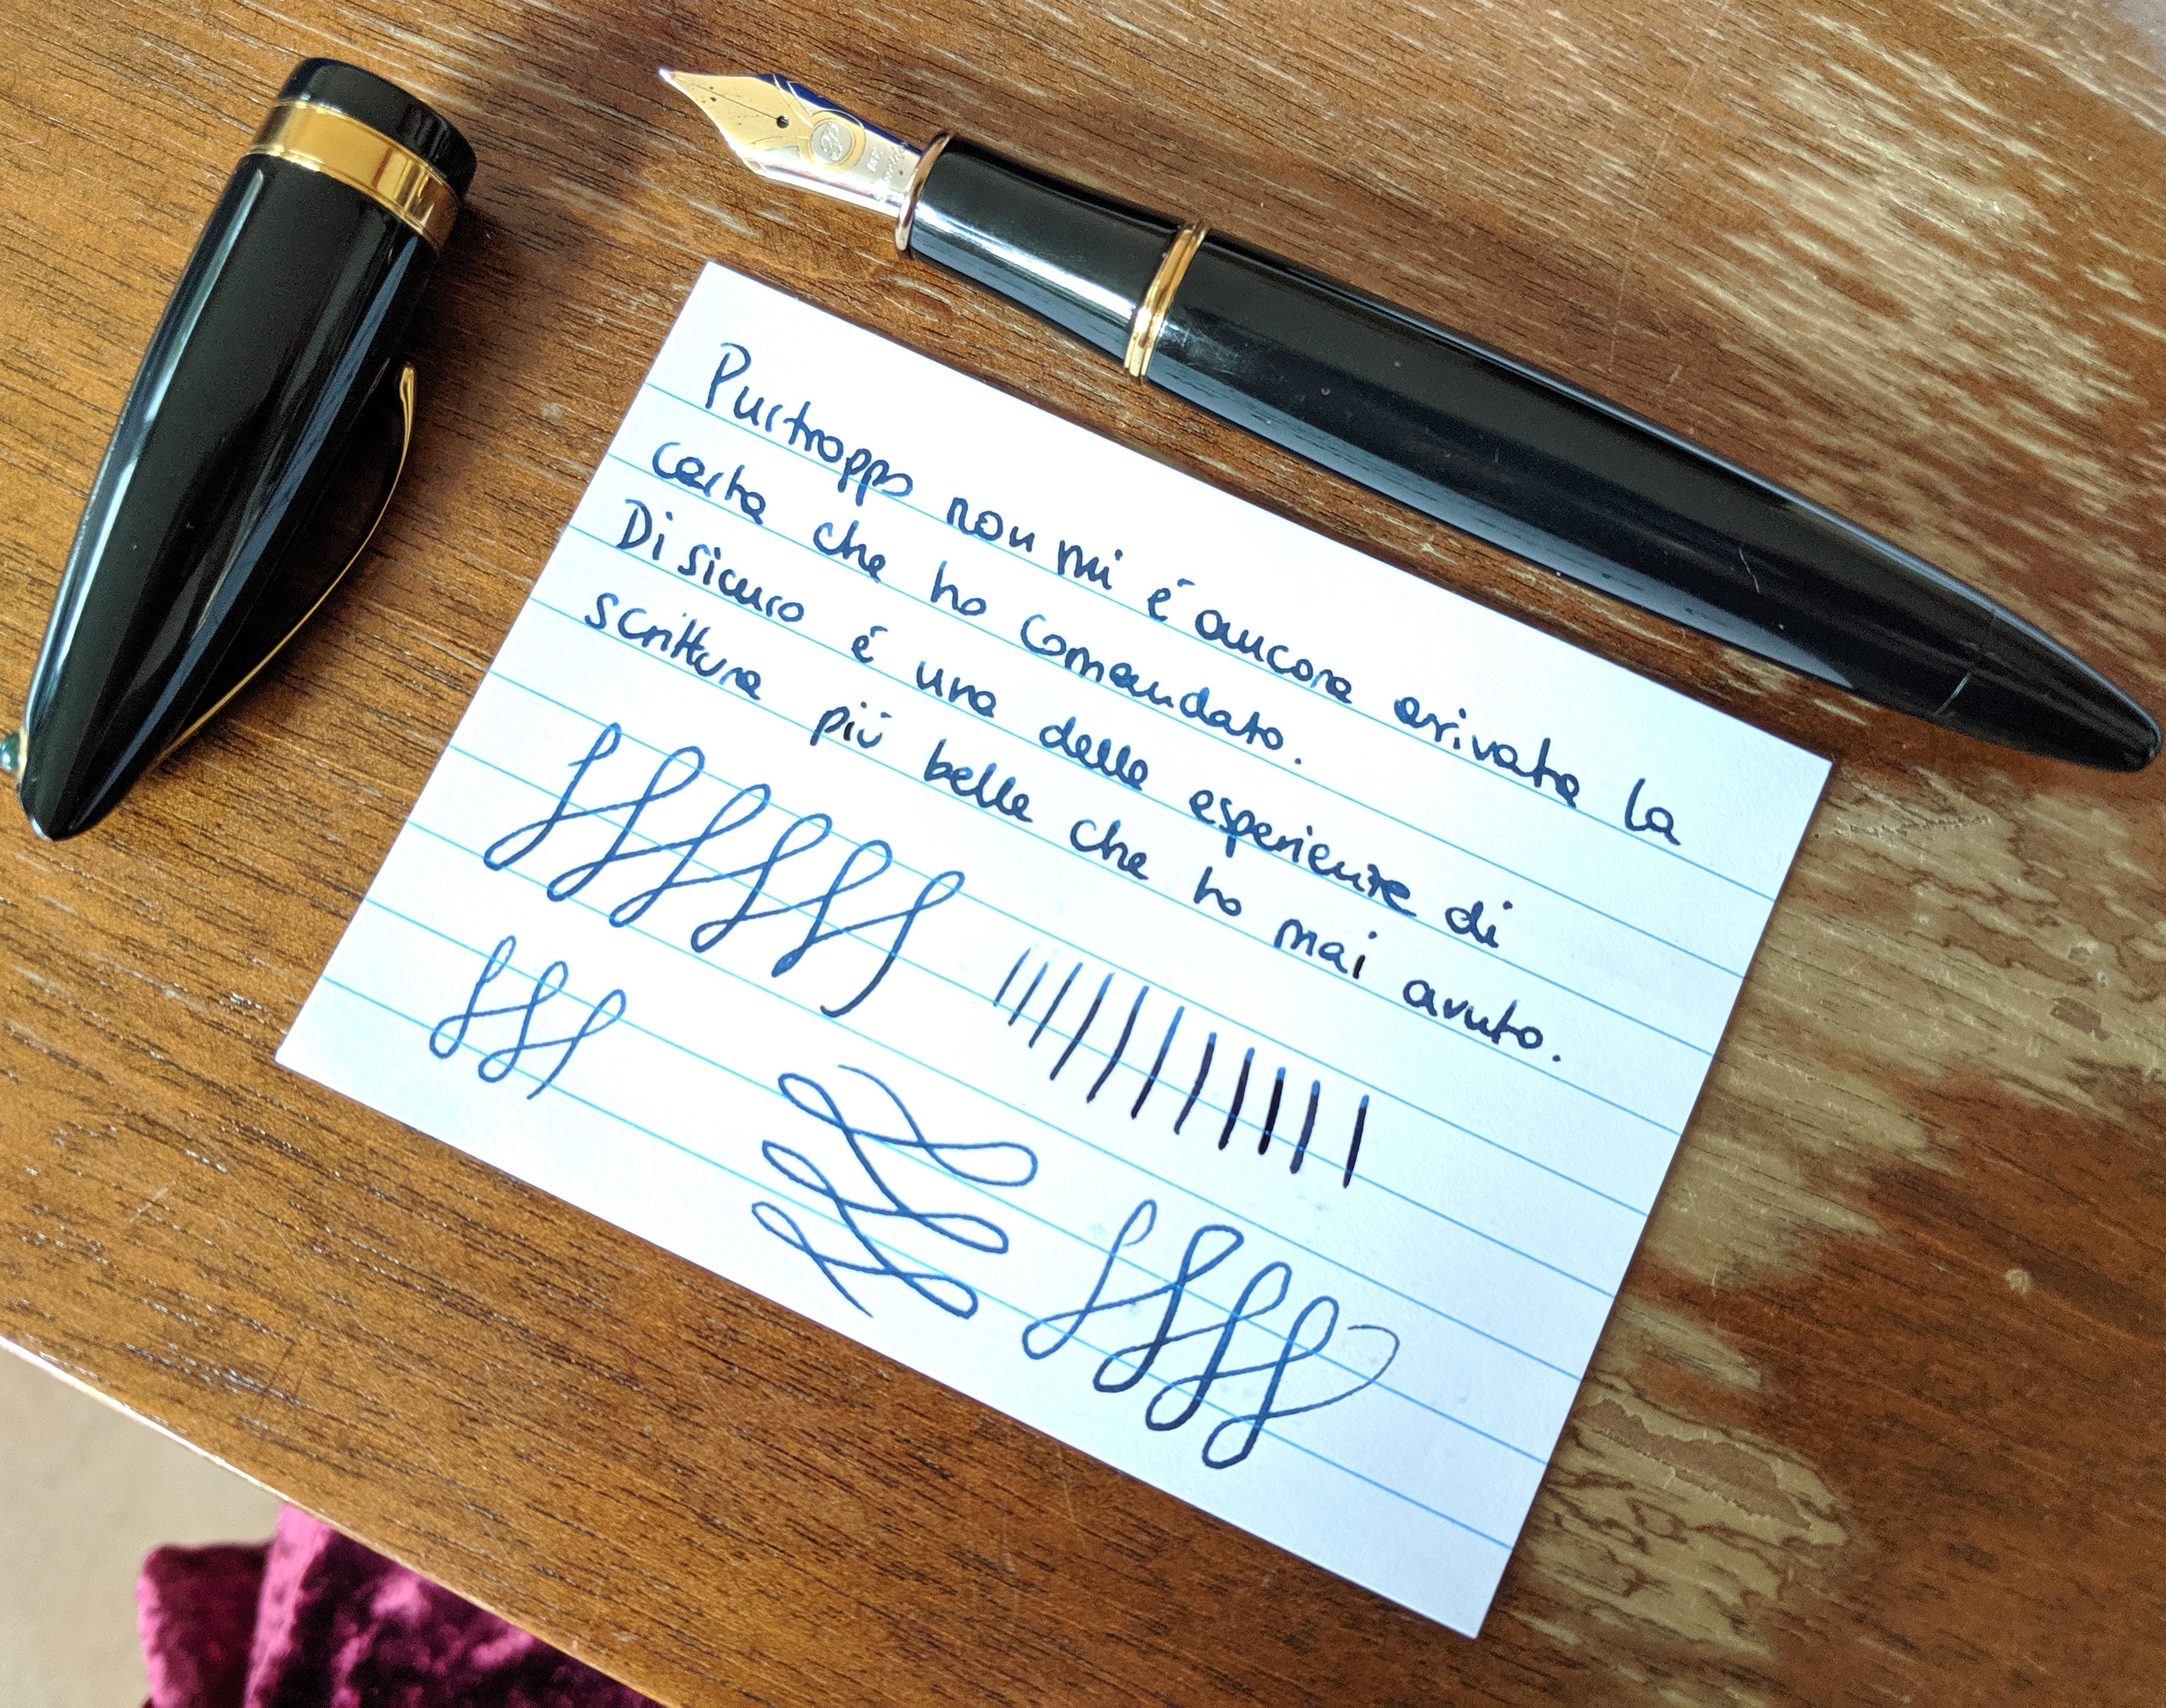 Purtroppo non mi é ancora arrivata la
carta che ho comandato.
Di sicuro é una delle esperienze di
scrittura piú belle che ho mai avuto.